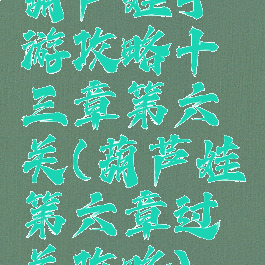 葫芦娃手
游攻略十
三章第六
关(葫芦娃
第六章过
关攻略)